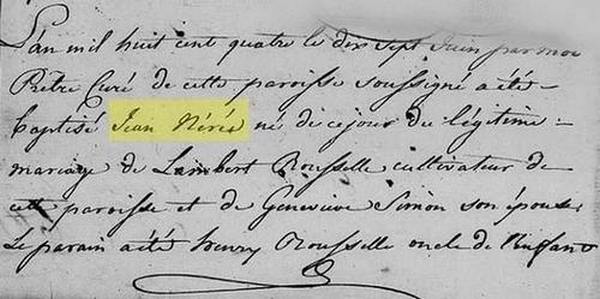 L'an mil huit cent quatre le dix sept Juin par moi
Prêtre Curé de cette paroisse soussigné a été
baptisé Jean Nérée né de ce jour du légitime
mariage de Lambert Rousselle cultivateur de
cette paroisse et de Genevieve Simon son épouse
Le parain a été henry Rousselle oncle de l'enfant